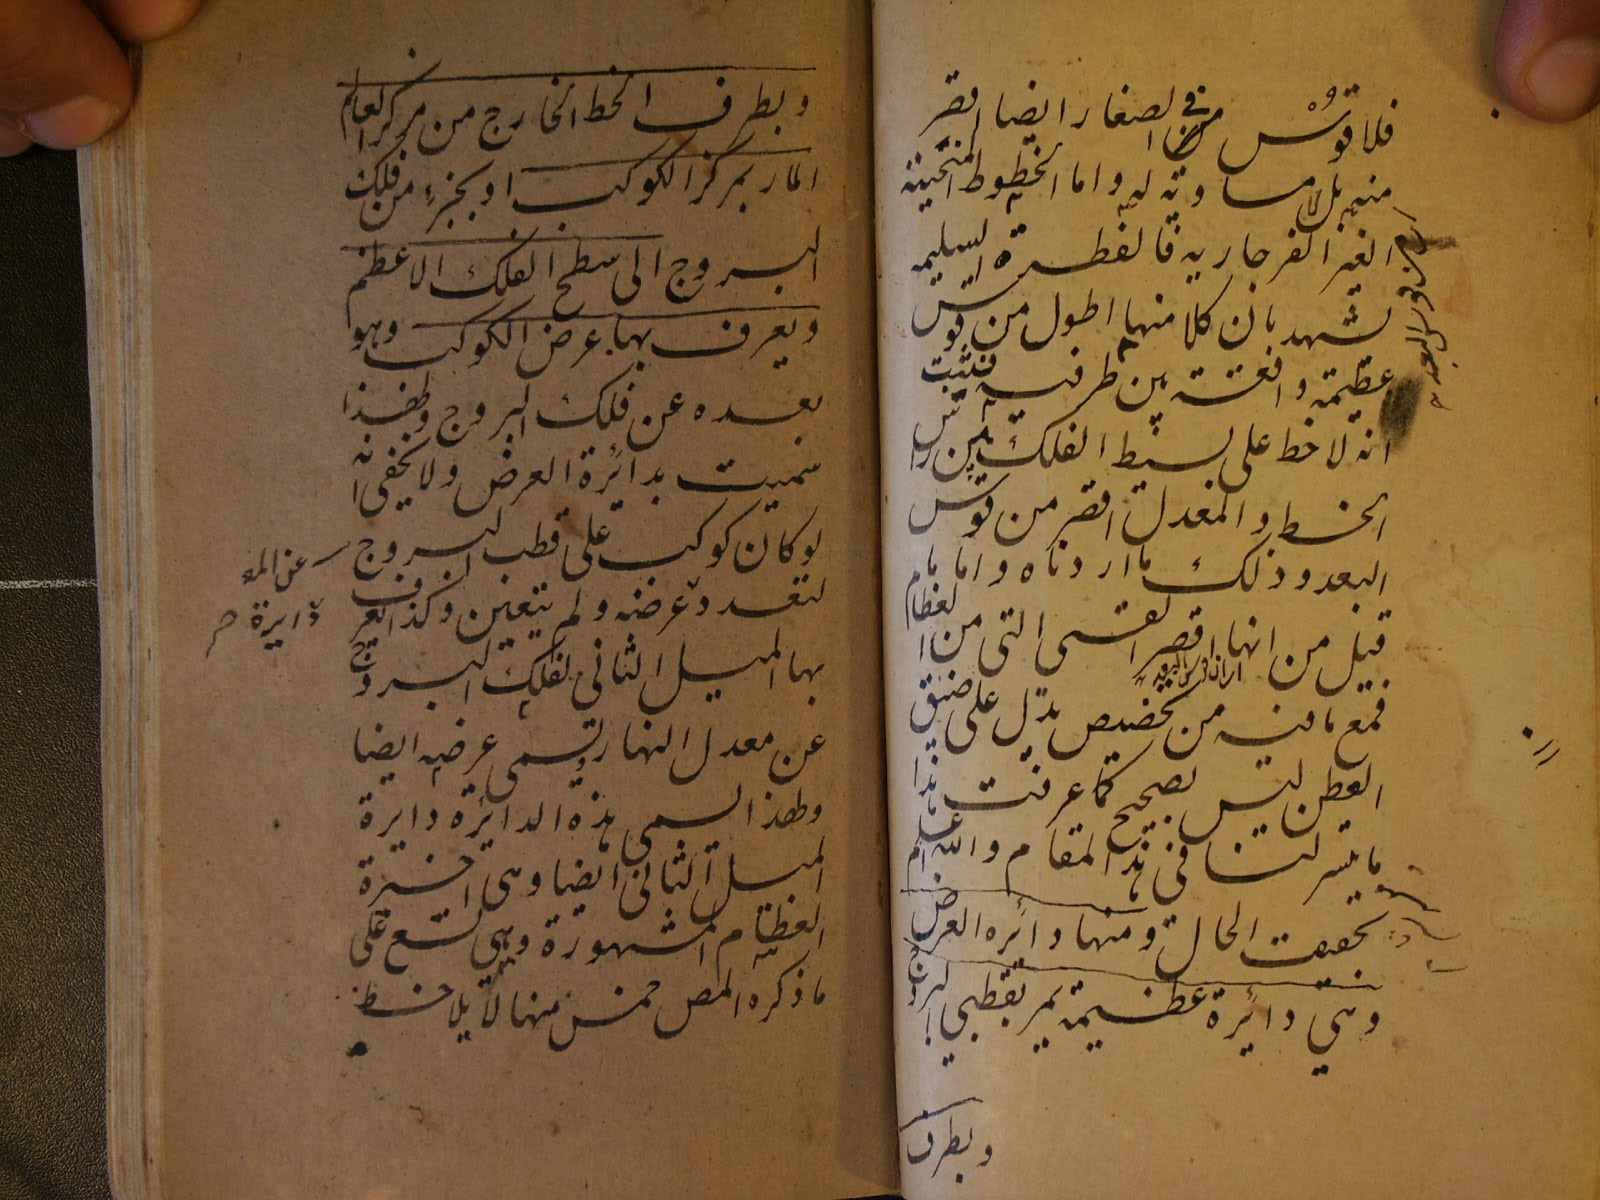 فلا قوس من في الصغار ايضا اقصر
منه بل لا مساوية له واما الخطوط المنحنية
الغير الفرجارية فالفطرة السليمة
تشهد بان كلا منها اطول من قوس
عظيمة واقعة بين طرفيه فثبت
انه لا خط على بسيط الفلك بين راس
الخط والمعدل اقصر من قوس
البعد وذلك ما اردناه واما ما
قيل من انها اقصر القسي التي من العظام
فمع ما فيه من تخصيص يدل على ضيق
العطن ليس بصحيح كما عرفت هذا
ما تيسر لنا في هذا المقام والله اعلم
بحقيقت الحال ومنها دائره العرض
وهي دائرة عظيمة تمر بقطبي البروج
وبطرف
وبطرف الخط الخارج من مركز العالم
المار بمركز الكوكب او بجزء من فلك
البروج الى سطح الفلك الاعظم
ويعرف بها عرض الكوكب وهو
بعده عن فلك البروج ولهذا
سميت بدائرة العرض ولا يخفى انه
لو كان كوكب على قطب البروج
لتعدد عرضه ولم يتعين وكذا يعرف
بها الميل الثاني لفلك البروج
عن معدل النهار ويسمى عرضه ايضا
ولهذا تسمى هذه الدائرة دايرة
الميل الثاني ايضا وهي اخيرة
العظام المشهورة وهي تسع على
ما ذكره المص خمس منها لا يلاحظ
دايرة